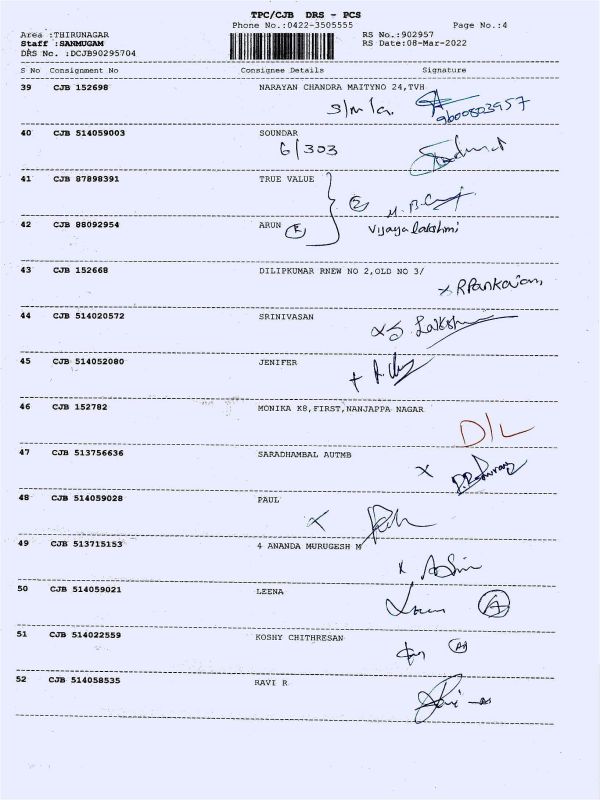 TPC/CJB DRS - PCS
Phone No.:0422-3505555
Page No.:4
Area :THIRUNAGAR
RS No.:902957
Staff :SANMUGAM
RS Date:08-Mar-2022
DRS No. :DCJB90295704
S No Consignment No Consignee Details Signature
39 CJB 152698 NARAYAN CHANDRA MAITYNO 24,TVH
9600803957
40 CJB 514059003 SOUNDAR
G/303
41 CJB 87898391 TRUE VALUE
42 CJB 88092954 ARUN
Vijayalakshmi
43 CJB 152668 DILIPKUMAR RNEW NO 2,OLD NO 3/
44 CJB 514020572 SRINIVASAN
45 CJB 514052080 JENIFER
46 CJB 152782 MONIKA K8,FIRST,NANJAPPA NAGAR
D/L
47 CJB 513756636 SARADHAMBAL AUTMB
48 CJB 514059028 PAUL
49 CJB 513715153 4 ANANDA MURUGESH M
50 CJB 514059021 LEENA
A
51 CJB 514022559 KOSHY CHITHRESAN
52 CJB 514058535 RAVI R